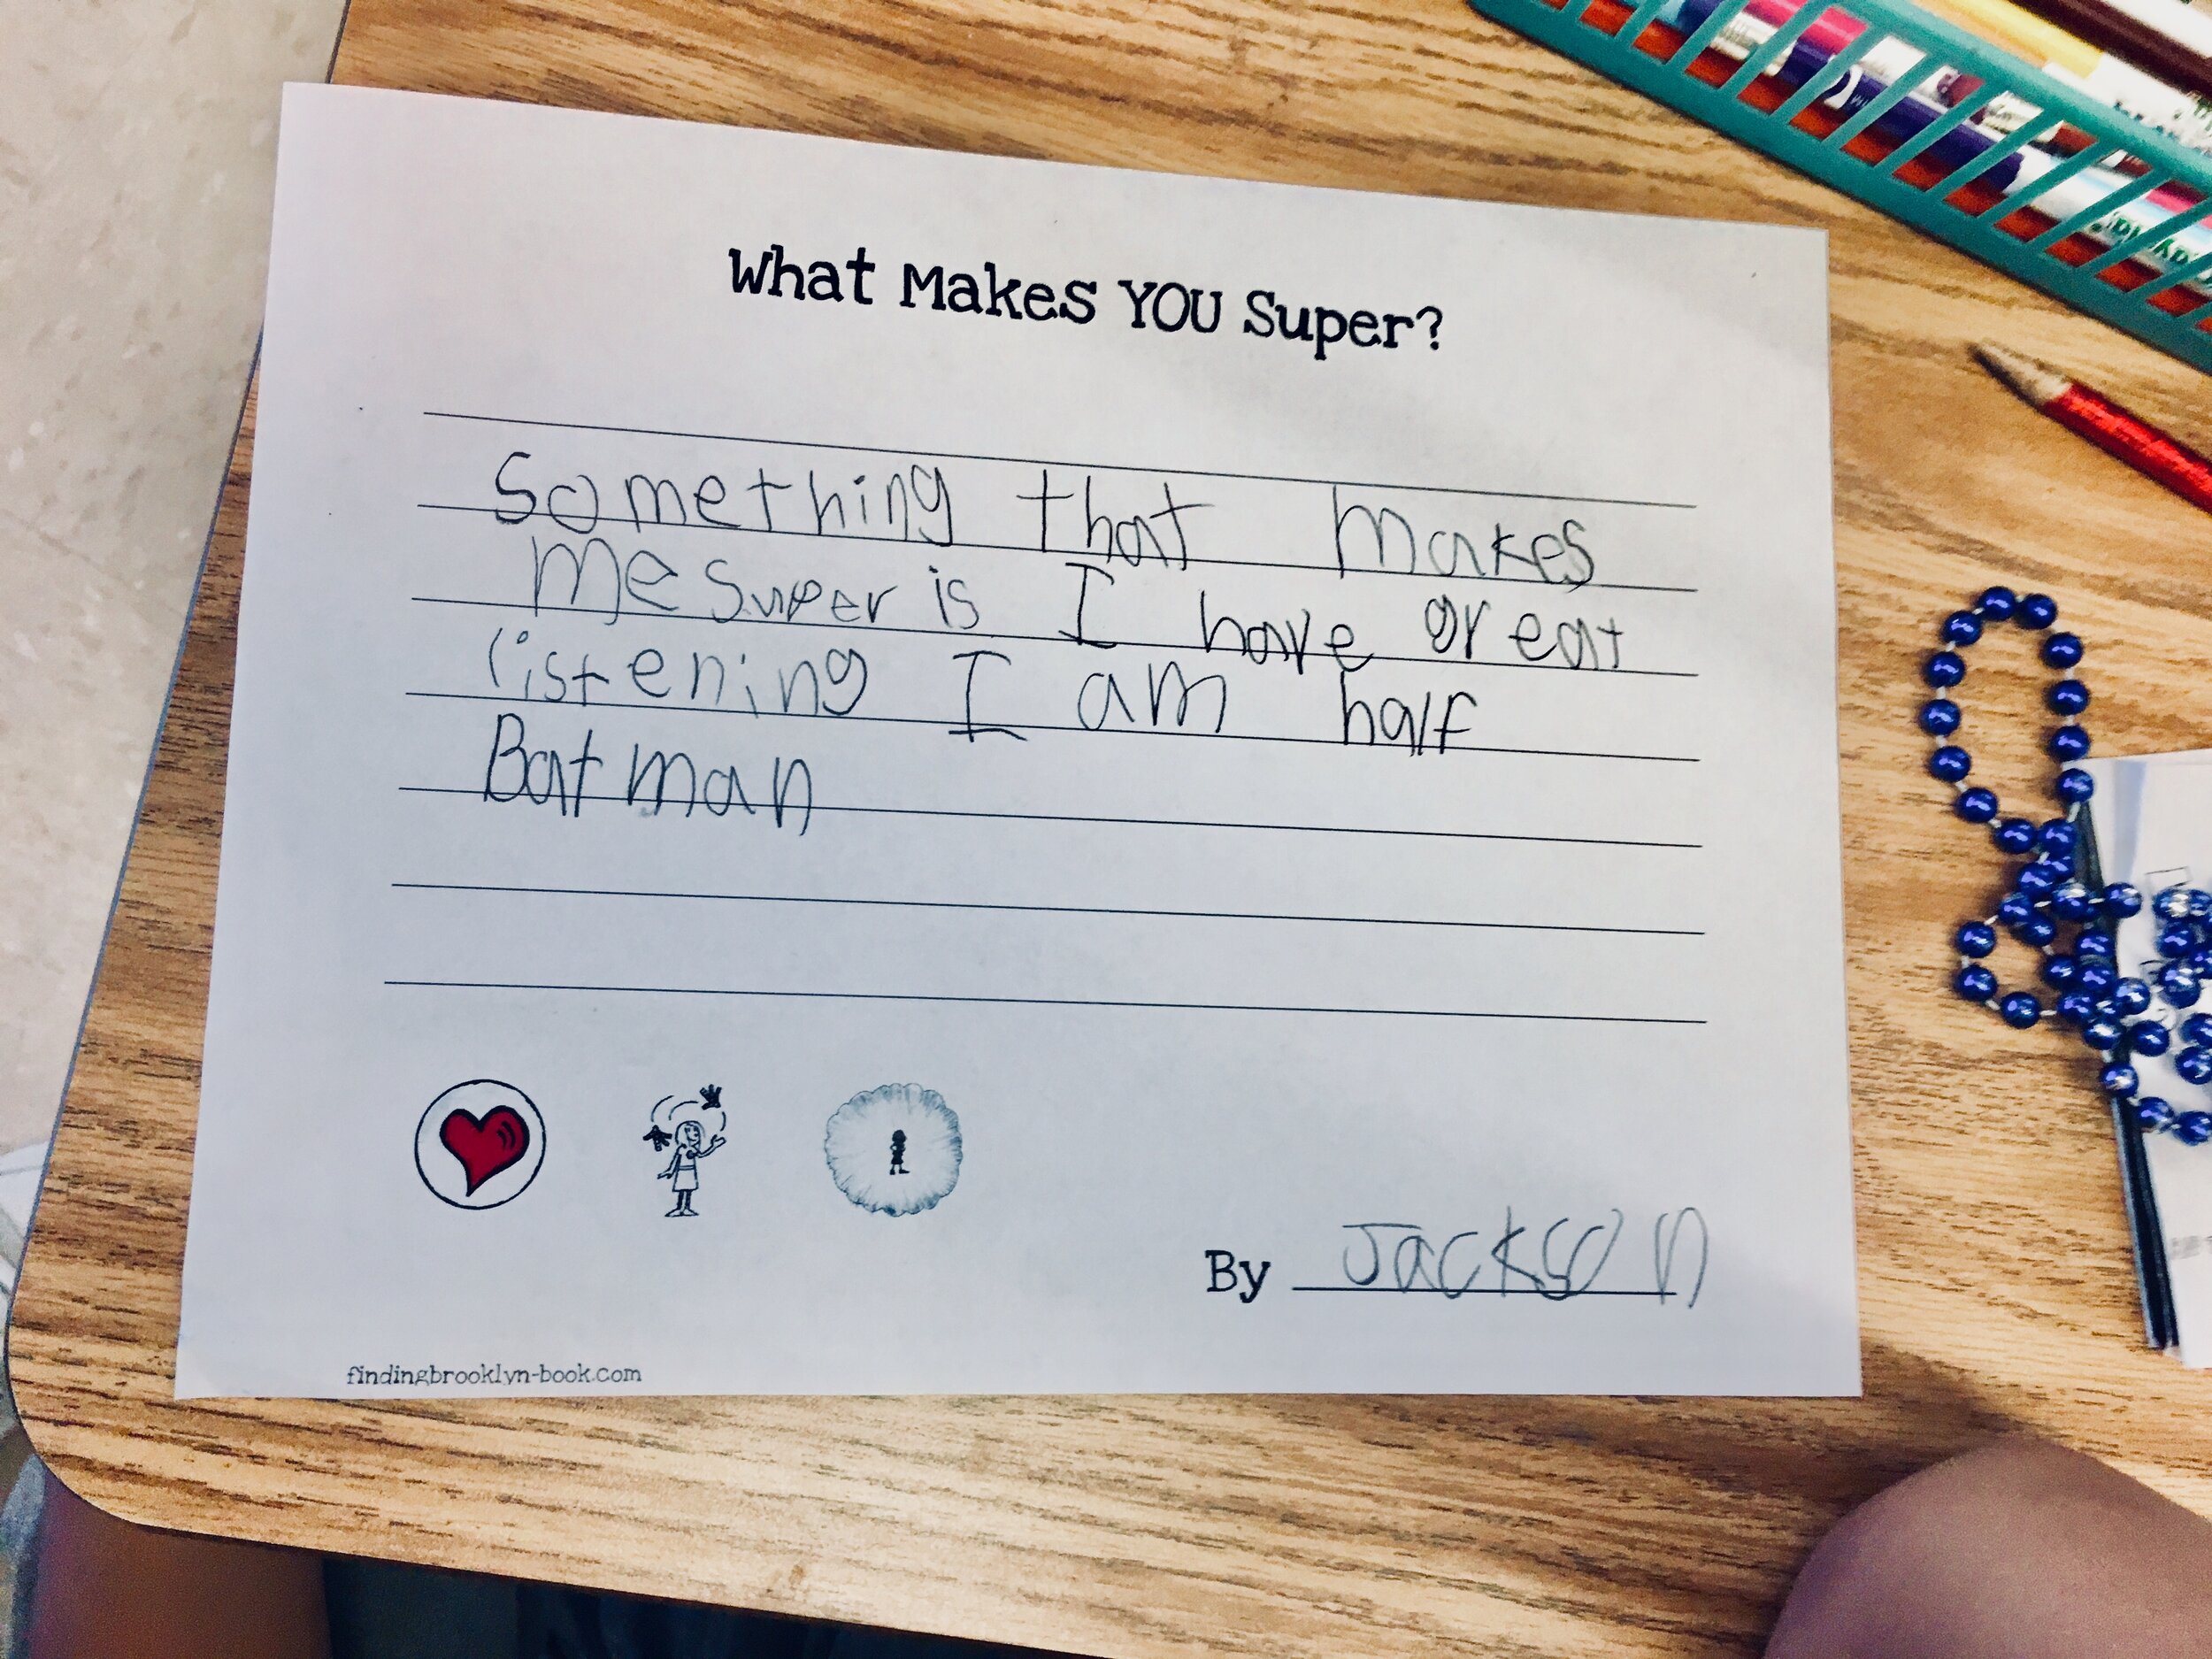 What Makes YOU Super?
Something that makes
me super is I have great
listening I am half
Batman
By Jackson
findingbrooklyn-book.com